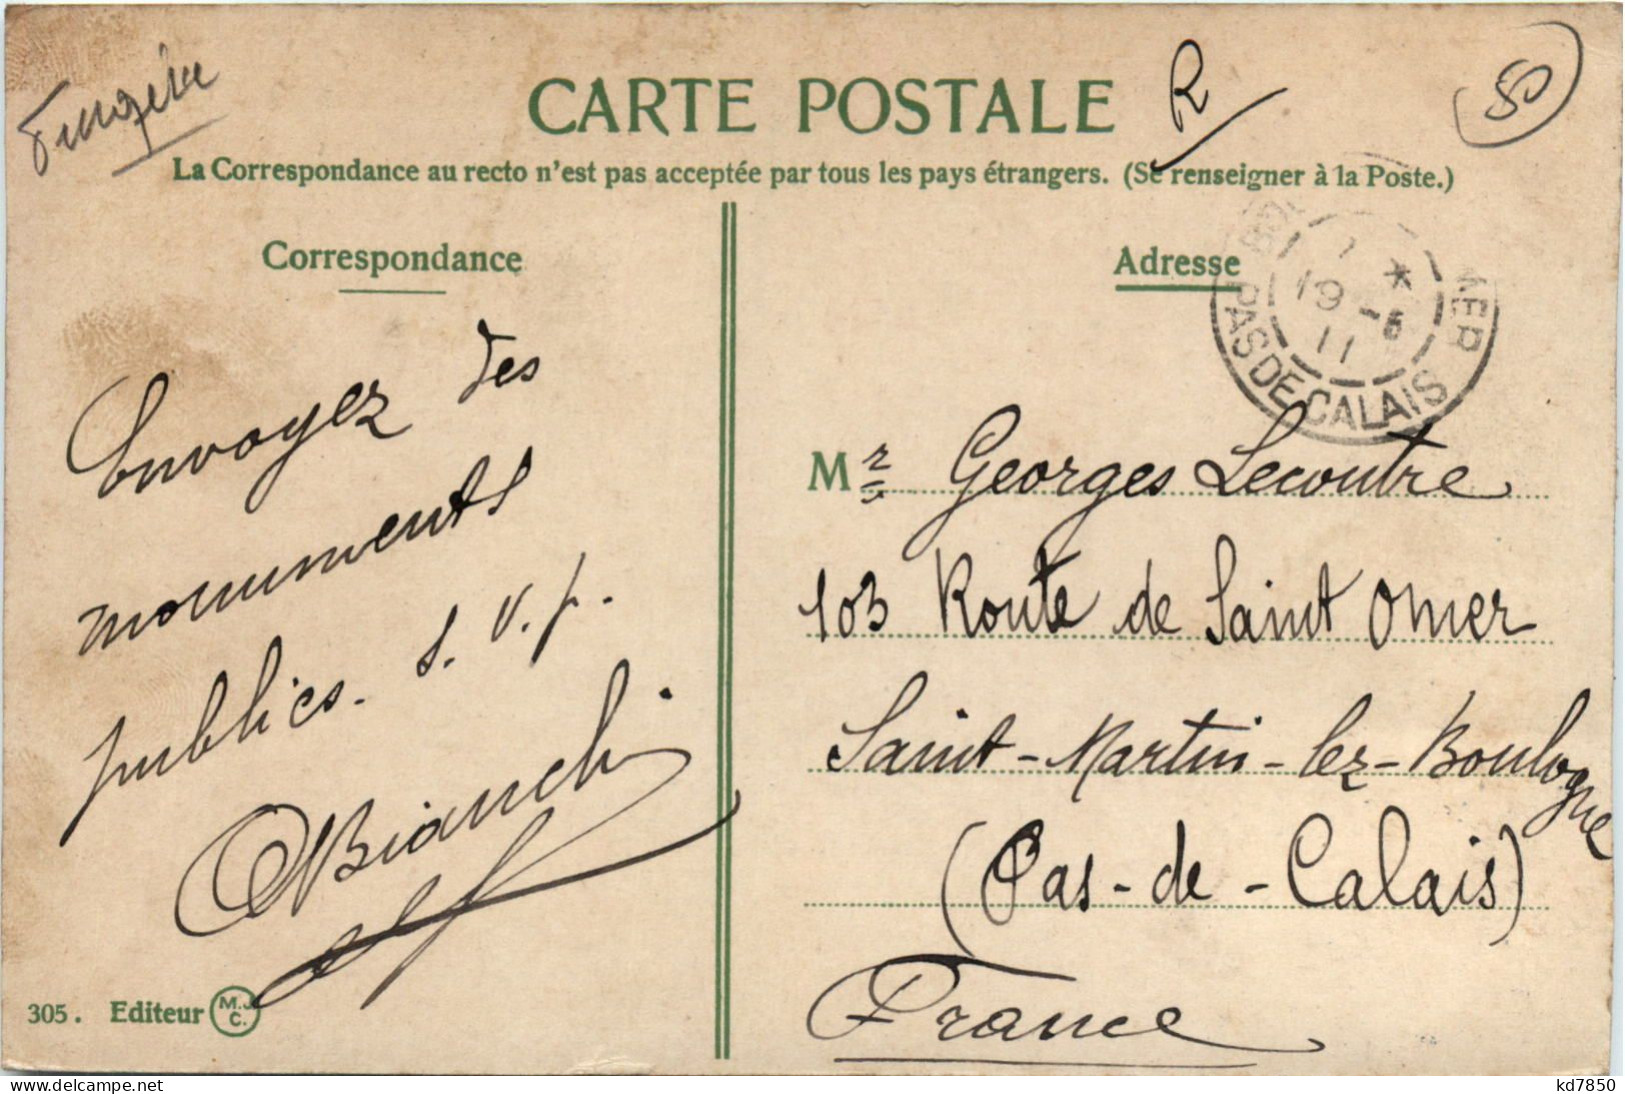 CARTE POSTALE
R
50
La Correspondance au recto n'est pas acceptée par tous les pays étrangers. (Se renseigner à la Poste.)
Correspondance
Envoyez des
monuments
publics. S. V. p.
Bianchi
305. Editeur M.J.C.
Adresse
MER
PAS DE CALAIS
19 -5
11
Mr Georges Lecoutre
103 Route de Saint Omer
Saint-Martin-lez-Boulogne
(Pas-de-Calais)
France
kd7850